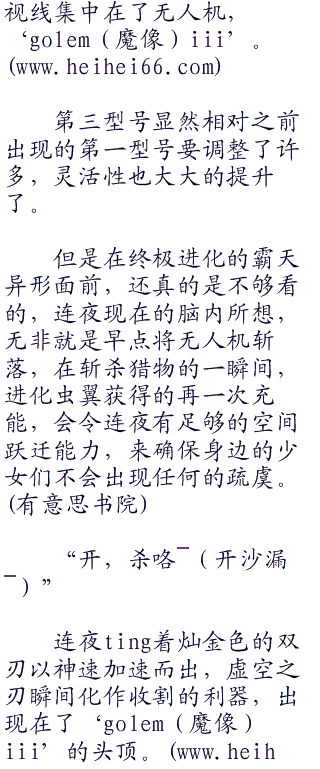 视线集中在了无人机，
‘golem（魔像）iii’。
(www.heihei66.com)
第三型号显然相对之前
出现的第一型号要调整了许
多，灵活性也大大的提升
了。
但是在终极进化的霸天
异形面前，还真的是不够看
的，连夜现在的脑内所想，
无非就是早点将无人机斩
落，在斩杀猎物的一瞬间，
进化虫翼获得的再一次充
能，会令连夜有足够的空间
跃迁能力，来确保身边的少
女们不会出现任何的疏虞。
(有意思书院)
“开，杀咯¯（开沙漏
¯）”
连夜ting着灿金色的双
刃以神速加速而出，虚空之
刃瞬间化作收割的利器，出
现在了‘golem（魔像）
iii’的头顶。(www.heih